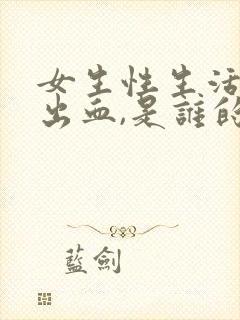 女生性生活
出血,是誰的
藍劍